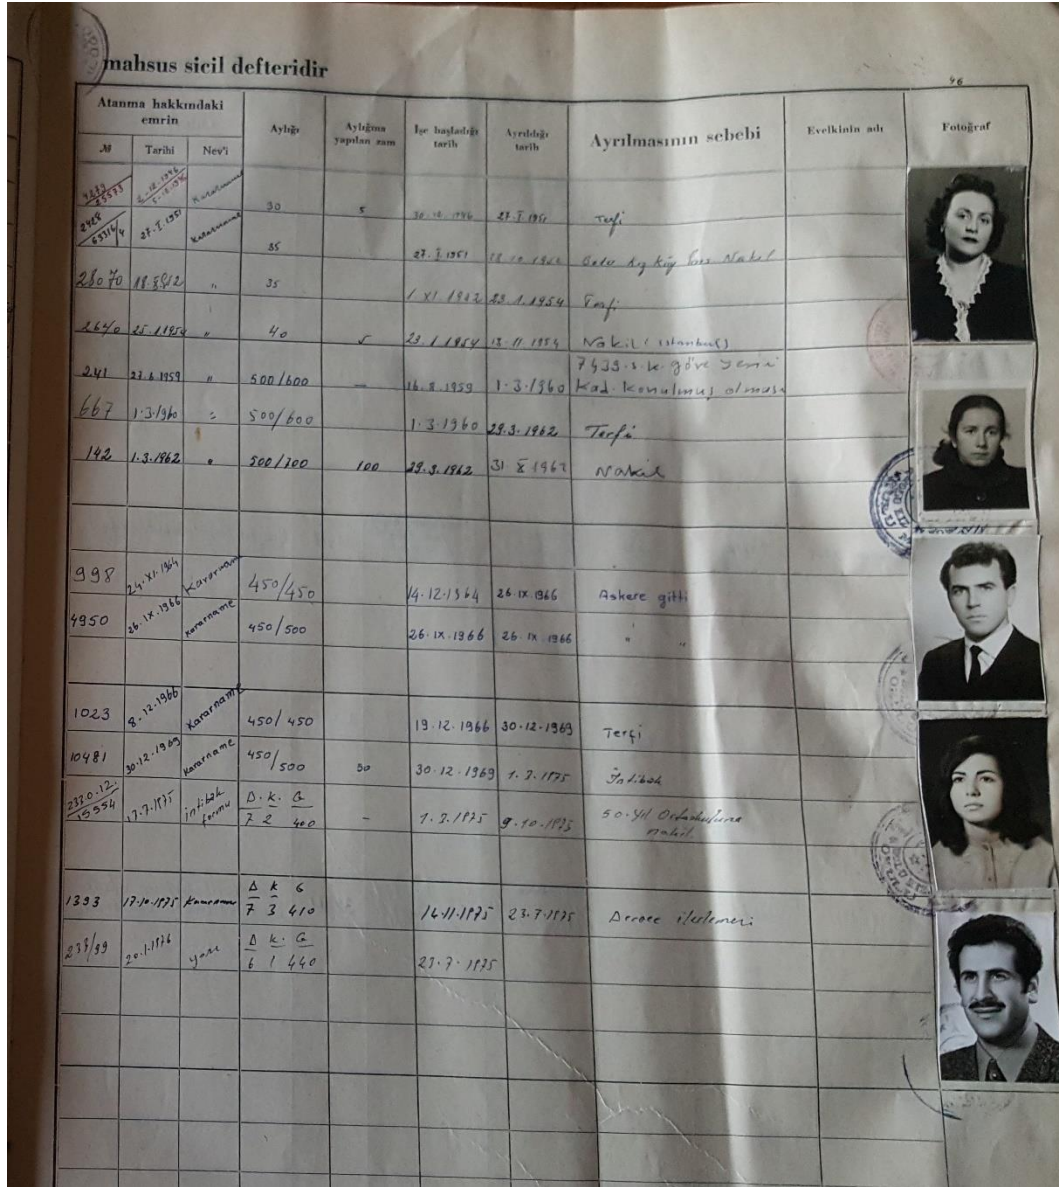 mahsus sicil defteridir
46
Atanma hakkındaki emrin
Aylığı
Aylığına yapılan zam
İşe başladığı tarih
Ayrıldığı tarih
Ayrılmasının sebebi
Evelkinin adı
Fotoğraf
№ Tarihi Nev'i
Kararname 30 5 30.10.1946 27.I.1951 Terfi
27.I.1951 Kararname 35 27.I.1951 Nakil
28070 " 35 1 XI 1952 23.1.1954 Terfi
2640 25.1.1954 " 40 5 23.1.1954 13.11.1954 Nakil (istanbul)
7439.s.k. göre yeni
241 27.6.1959 " 500/600 — 16.8.1959 1.3.1960 Kad. konulmuş olması
667 1.3.1960 " 500/600 1.3.1960 29.3.1962 Terfi
142 1.3.1962 " 500/700 100 29.3.1962 31 X 1962 Nakil
998 24.XI.1964 Kararname 450/450 14.12.1964 26.IX.1966 Askere gitti
4950 26.IX.1966 Kararname 450/500 26.IX.1966 26.IX.1966 " "
1023 8.12.1966 Kararname 450/450 19.12.1966 30.12.1969 Terfi
10481 30.12.1969 Kararname 450/500 50 30.12.1969 1.7.1975 İntibak
D. K. G
15554 17.7.1975 intibak formu 7 2 400 - 1.7.1975 9.10.1975 50.Yıl Ortaokuluna nakil.
D K G
1393 17.10.1975 Kararname 7 3 410 14.11.1975 23.7.1975 Derece ilerlemesi
D K. G
237/99 20.1.1976 yazı 6 1 440 23.7.1975